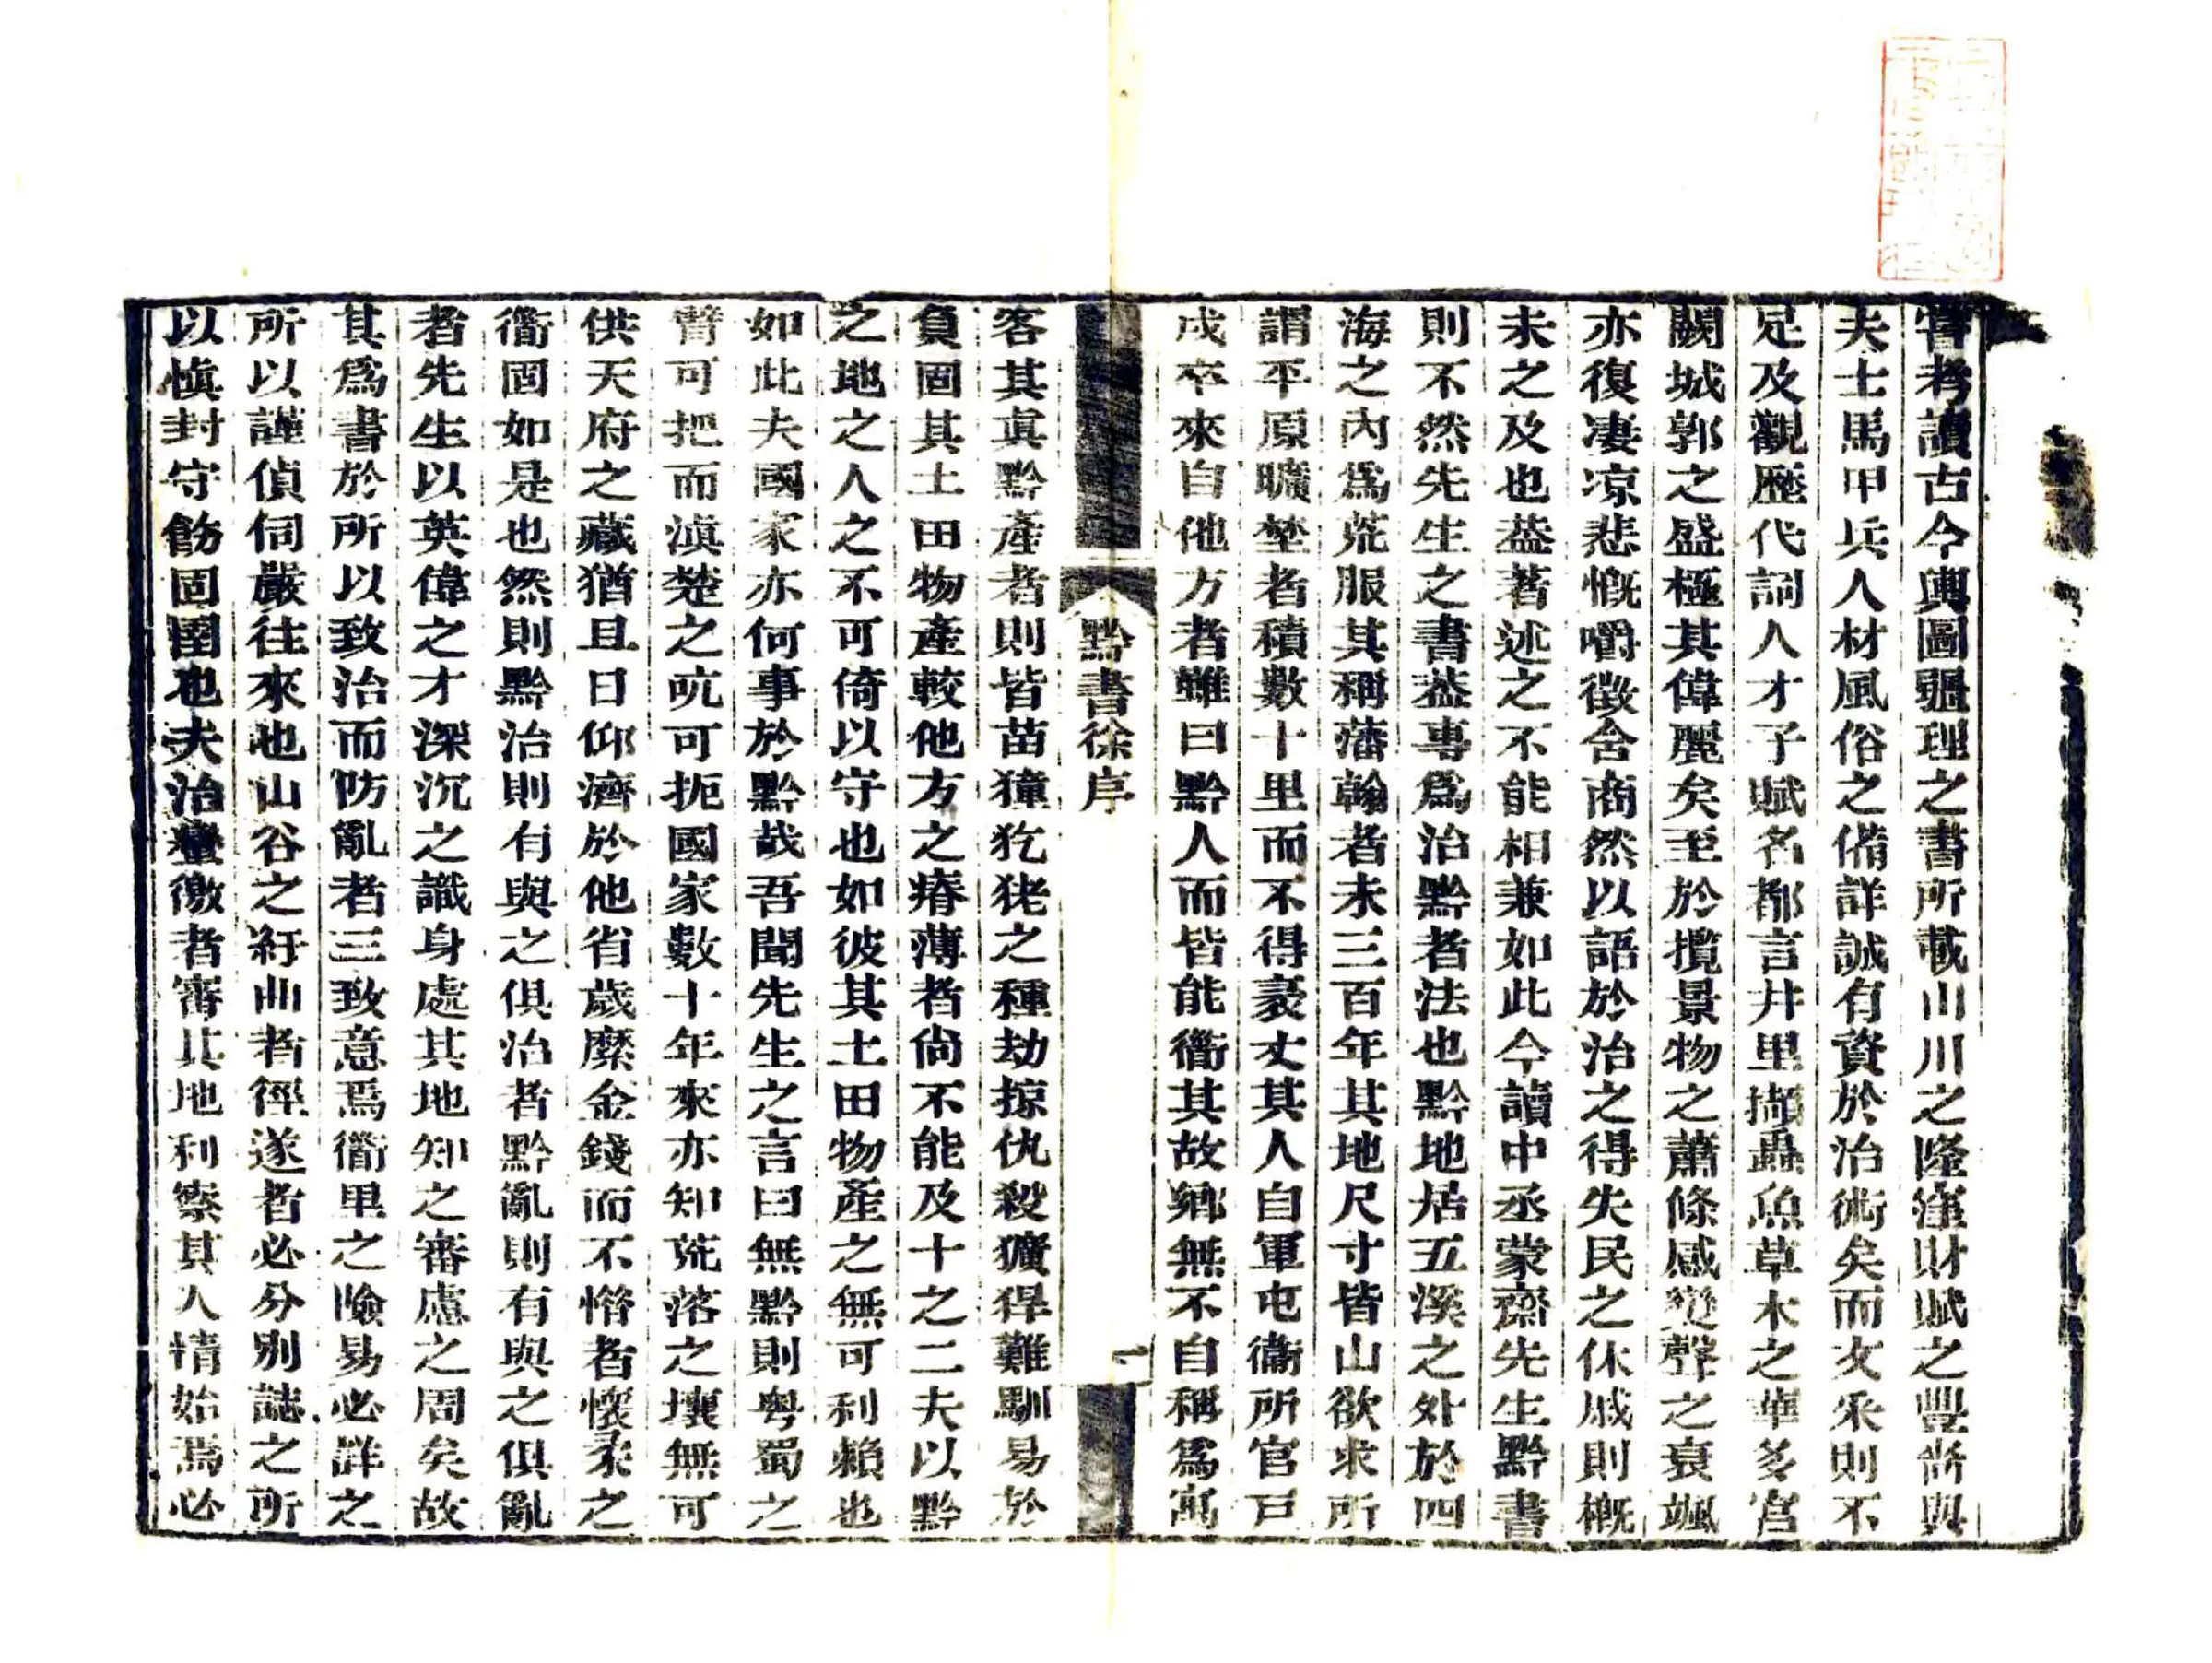 嘗考讀古今輿圖疆理之書所載山川之隆窪財賦之豐嗇與
夫士馬甲兵人材風俗之備詳誠有資於治術矣而文釆則不
足及觀歷代詞人才子賦名都言井里擷蟲魚草木之華多宮
闕城郭之盛極其偉麗矣至於攬景物之蕭條感變聲之衰颯
亦復凄凉悲慨嚼徵含商然以語於治之得失民之休戚則槪
未之及也葢著述之不能相兼如此今讀中丞蒙齋先生黔書
則不然先生之書葢專爲治黔者法也黔地居五溪之外於四
海之內爲荒服其稱藩翰者未三百年其地尺寸皆山欲求所
謂平原曠埜者積數十里而不得袤丈其人自軍屯衞所官戸
戍卒來自他方者雖曰黔人而皆能衞其故鄉無不自稱爲寓
黔書徐序
一
客其眞黔產者則皆苗獞犵狫之種劫掠仇殺獷猂難馴易於
負固其土田物產較他方之瘠薄者尙不能及十之二夫以黔
之地之人之不可倚以守也如彼其土田物產之無可利賴也
如此夫國家亦何事於黔哉吾聞先生之言曰無黔則粤蜀之
臂可把而滇楚之吭可扼國家數十年來亦知荒落之壤無可
供天府之藏猶且日仰濟於他省歲縻金錢而不惜者懷柔之
衞固如是也然則黔治則有與之俱治者黔亂則有與之俱亂
者先生以英偉之才深沉之識身處其地知之審慮之周矣故
其爲書於所以致治而防亂者三致意焉衞里之險易必詳之
所以謹偵伺嚴往來也山谷之紆曲者徑遂者必分別誌之所
以愼封守飭固圉也夫治蠻徼者審其地利察其人情始焉必